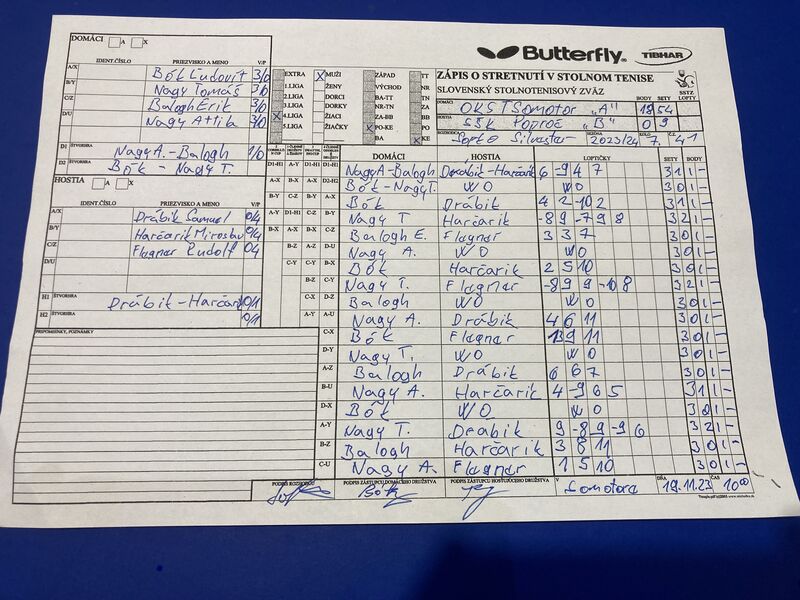 Butterfly
TIBHAR
DOMÁCI A X
IDENT.ČÍSLO PRIEZVISKO A MENO V/P
A/X Bók Ľudovít 3/0
B/Y Nagy Tomáš 3/0
C/Z Balogh Erik 3/0
D/U Nagy Attila 3/0
D1 Nagy A.-Balogh 1/0
D2 Bók - Nagy T.
HOSTIA A X
IDENT.ČÍSLO PRIEZVISKO A MENO V/P
A/X Drábik Samuel 0/4
B/Y Harčarik Miroslav 0/4
C/Z Flagner Rudolf 0/4
D/U
H1 ŠTVORHRA Drábik-Harčarik 0/1
H2 ŠTVORHRA 0/1
PRIPOMIENKY, POZNÁMKY
EXTRA X MUŽI ZÁPAD TT
1.LIGA ŽENY VÝCHOD NR
2.LIGA DORCI BA-TT TN
3.LIGA DORKY NR-TN ZA
X 4.LIGA ŽIACI ZA-BB BB
5.LIGA ŽIAČKY X PO-KE PO
BA X KE
ZÁPIS O STRETNUTÍ V STOLNOM TENISE
SLOVENSKÝ STOLNOTENISOVÝ ZVÄZ
BODY SETY SSTZ LOPTY
DOMÁCI OKST Somotor "A" 18 54
HOSTIA ŠŠK Poproč "B" 0 9
ROZHODCA Silvester 2023/24 KOLO 7.
DOMÁCI HOSTIA LOPTIČKY SETY BODY
D1-H1 Nagy A-Balogh Drábik-Harčarik 6 -9 4 7 3 1 1 -
D2-H2 Bók-Nagy T. WO WO 3 0 1 -
Bók Drábik 4 2 -10 2 3 1 1 -
Nagy T Harčarik -8 9 -7 9 8 3 2 1 -
Balogh E. Flagner 3 3 7 3 0 1 -
Nagy A. WO WO 3 0 1 -
Bók Harčarik 2 5 10 3 0 1 -
Nagy T. Flagner -8 9 9 -10 8 3 2 1 -
Balogh WO WO 3 0 1 -
A-U Nagy A. Drábik 4 6 11 3 0 1 -
C-X Bók Flagner 13 9 11 3 0 1 -
D-Y Nagy T. WO WO 3 0 1 -
A-Z Balogh Drábik 6 6 7 3 0 1 -
B-U Nagy A. Harčarik 4 -9 6 5 3 1 1 -
D-X Bók WO WO 3 0 1 -
A-Y Nagy T. Drábik 9 -8 9 -9 6 3 2 1 -
B-Z Balogh Harčarik 3 8 11 3 0 1 -
C-U Nagy A. Flagner 1 5 10 3 0 1 -
PODPIS ROZHODCU PODPIS ZÁSTUPCU DOMÁCEHO DRUŽSTVA PODPIS ZÁSTUPCU HOSŤUJÚCEHO DRUŽSTVA V DŇA ČAS
Bók Somotore 19.11.23 10:00